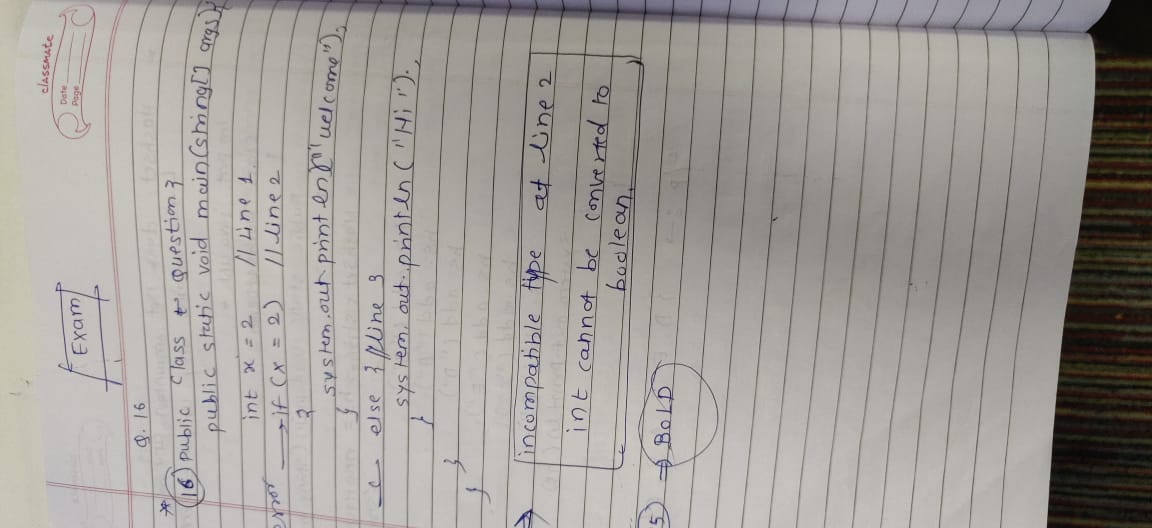 classmate
Date
Page
Exam
Q. 16
16 public class question {
public static void main(string[] args) {
int x = 2 // Line 1
error → if (x = 2) // Line 2
{
system.out.println("welcome");
}
else { // line 3
system.out.println("Hi");
}
}
}
→ incompatible type at line 2
int cannot be converted to
boolean.
5) → BOLD